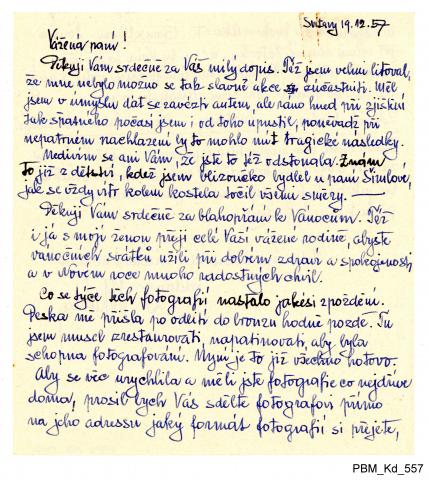 Svitavy 19.12.57
Vážená paní!
Děkuji Vám srdečně za Váš milý dopis. Též jsem velmi litoval,
že mne nebylo možno se tak slavné akce zúčastniti. Měl
jsem v úmyslu dát se zavézti autem, ale ráno hned při zjištění
tak špatného počasí jsem i od toho upustil, poněvadž při
nepatrném nachlazení by to mohlo mít tragické následky.
Nedivím se ani Vám, že jste to též odstonala. Znám
to již z dětství, kdež jsem blizoučko bydlel u paní Šimlové,
jak se vždy vítr kolem kostela točil všemi směry. —
Děkuji Vám srdečně za blahopřání k Vánocům. Též
i já s mojí ženou přeji celé Vaší vážené rodině, abyste
vánočních svátků užili při dobrém zdraví a spokojenosti
a v Novém roce mnoho radostných chvil.
Co se týče těch fotografií nastalo jakési zpoždění.
Deska mě přišla po odlití do bronzu hodně pozdě. Tu
jsem musel zrestaurovati, napatinovati, aby byla
schopna fotografování. Nyní je to již všechno hotovo.
Aby se věc urychlila a měli jste fotografie co nejdříve
doma, prosil bych Vás sdělte fotografovi přímo
na jeho adressu jaký formát fotografií si přejete,
PBM_Kd_557